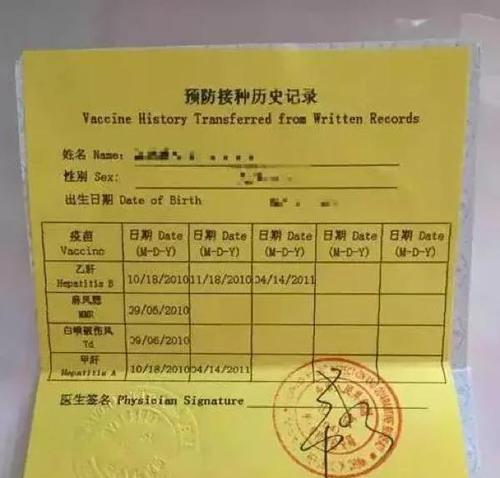 预防接种历史记录
Vaccine History Transferred from Written Records
姓名 Name:
性别 Sex:
出生日期 Date of Birth
疫苗 日期 Date 日期 Date 日期 Date 日期 Date 日期 Date
Vaccine (M-D-Y) (M-D-Y) (M-D-Y) (M-D-Y) (M-D-Y)
乙肝
Hepatitis B 10/18/2010 11/18/2010 04/14/2011
麻风腮
MMR 09/06/2010
白喉破伤风
Td 09/06/2010
甲肝
Hepatitis A 10/18/2010 04/14/2011
医生签名 Physician Signature